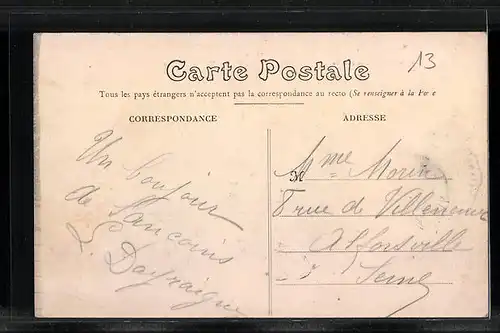 Carte Postale
13
Tous les pays étrangers n'acceptent pas la correspondance au recto (Se renseigner à la Pos e
CORRESPONDANCE
ADRESSE
Un bonjour
de Sancoins
L.
M
Mme Morin
8 rue de Villeneuve
Alfortville
Seine